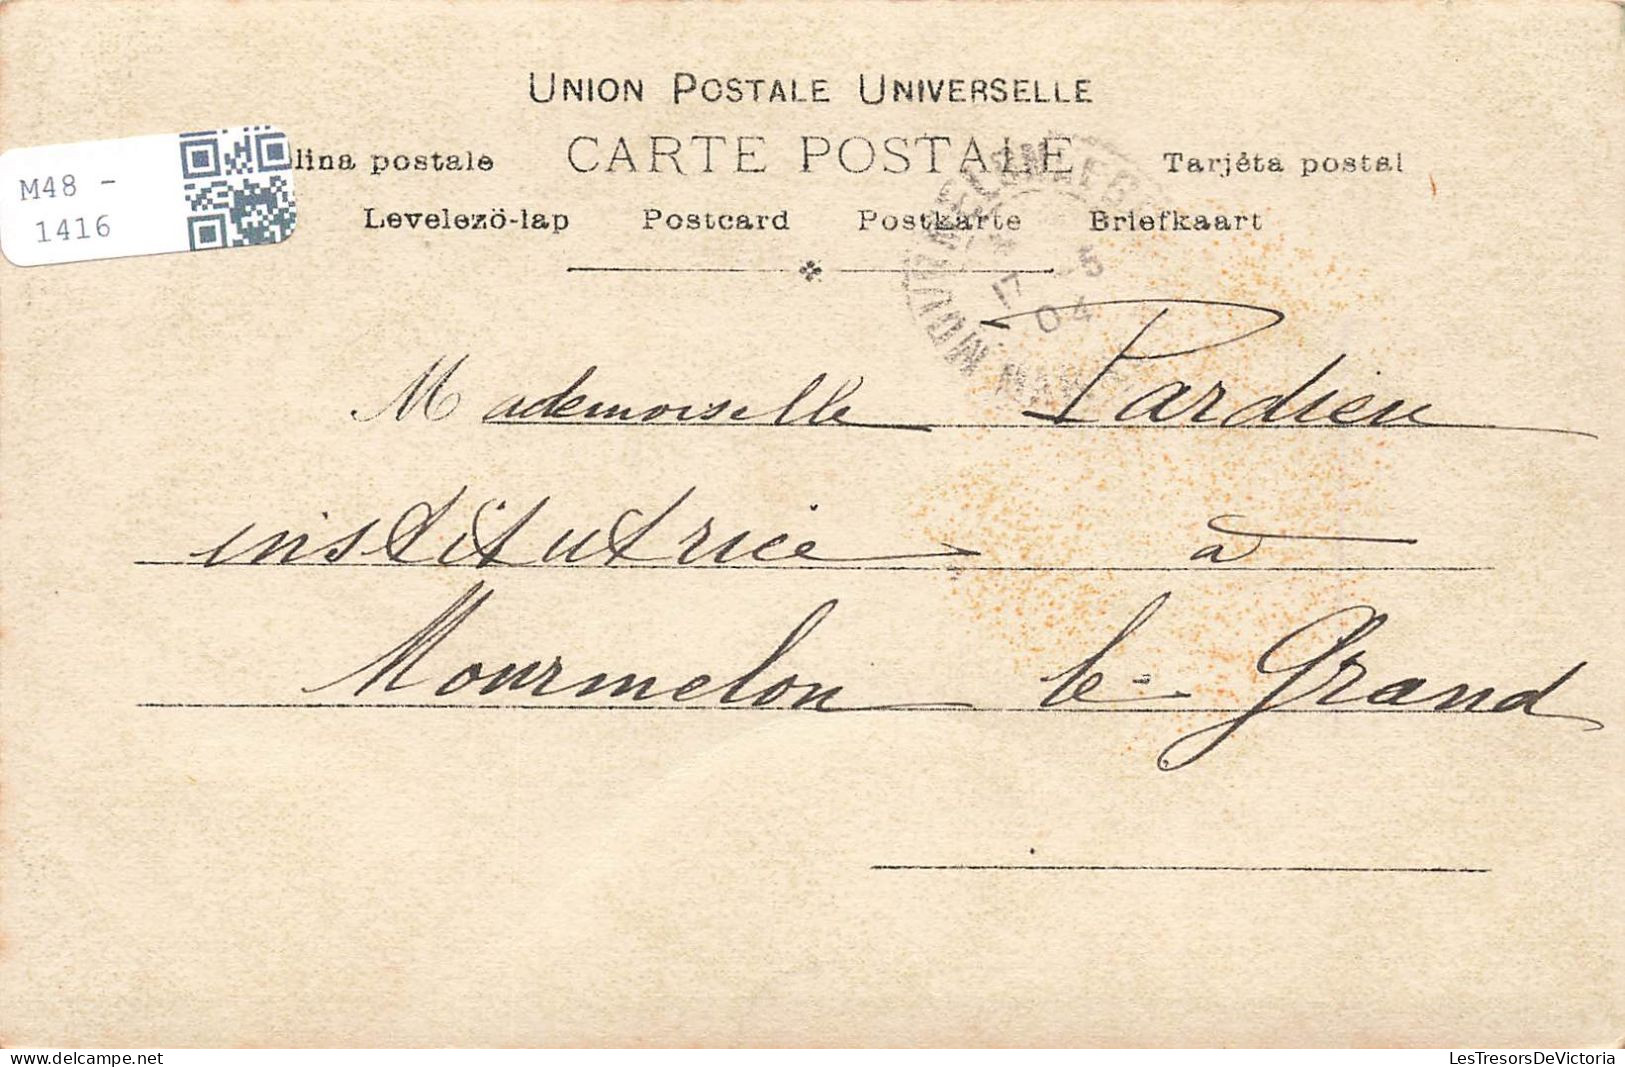 UNION POSTALE UNIVERSELLE
CARTE POSTALE
lina postale
Tarjéta postal
Levelezö-lap Postcard Postkarte Briefkaart
M48 -
1416
17 5
04
Mademoiselle Pardieu
institutrice à
Mourmelon le Grand
delcampe.net
LesTresorsDeVictoria